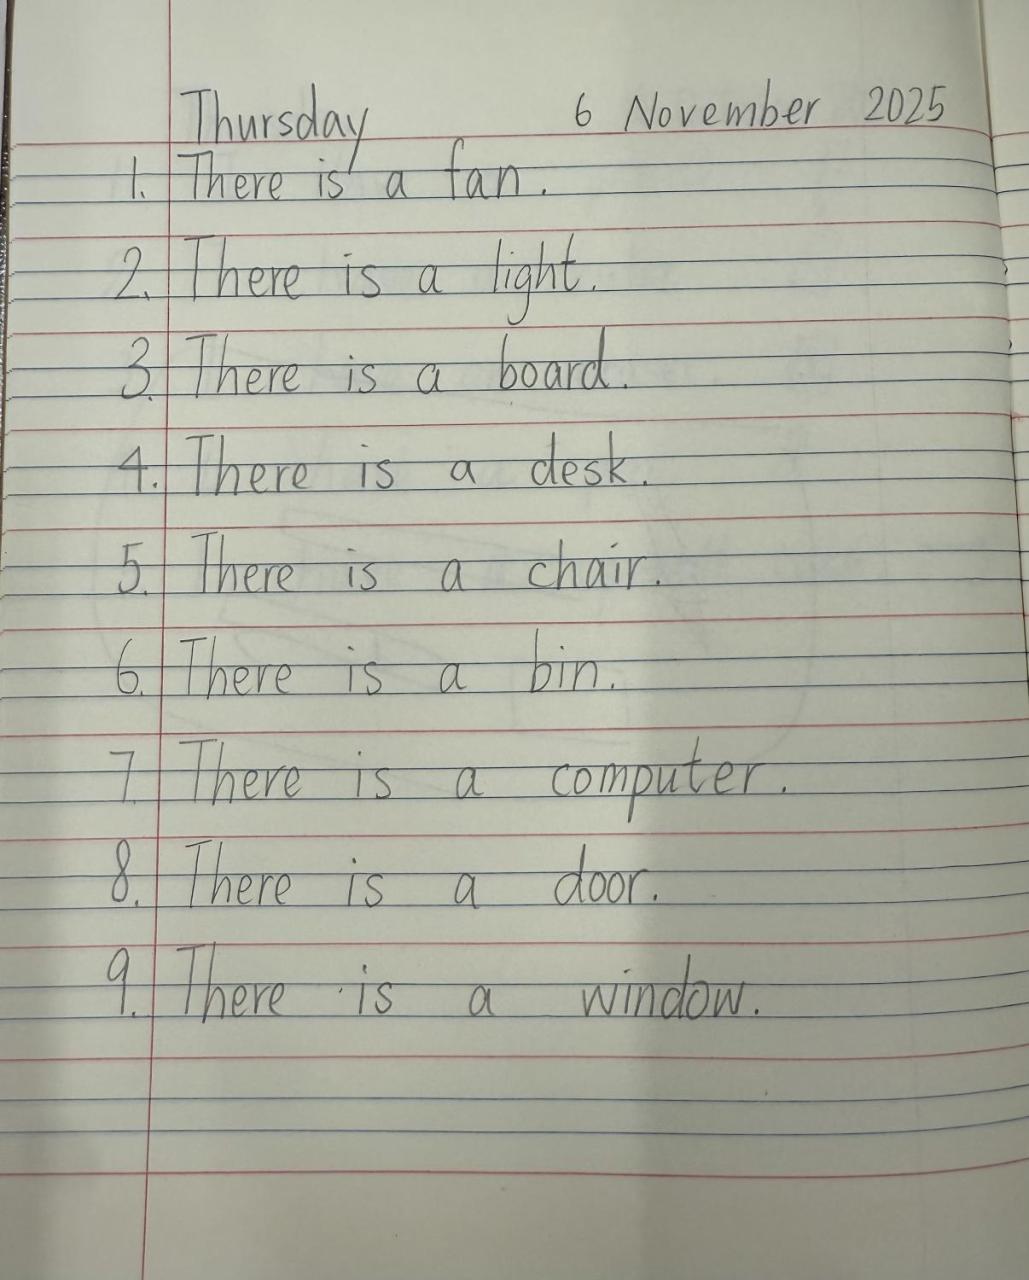 Thursday 6 November 2025
1. There is a fan.
2. There is a light.
3. There is a board.
4. There is a desk.
5. There is a chair.
6. There is a bin.
7. There is a computer.
8. There is a door.
9. There is a window.